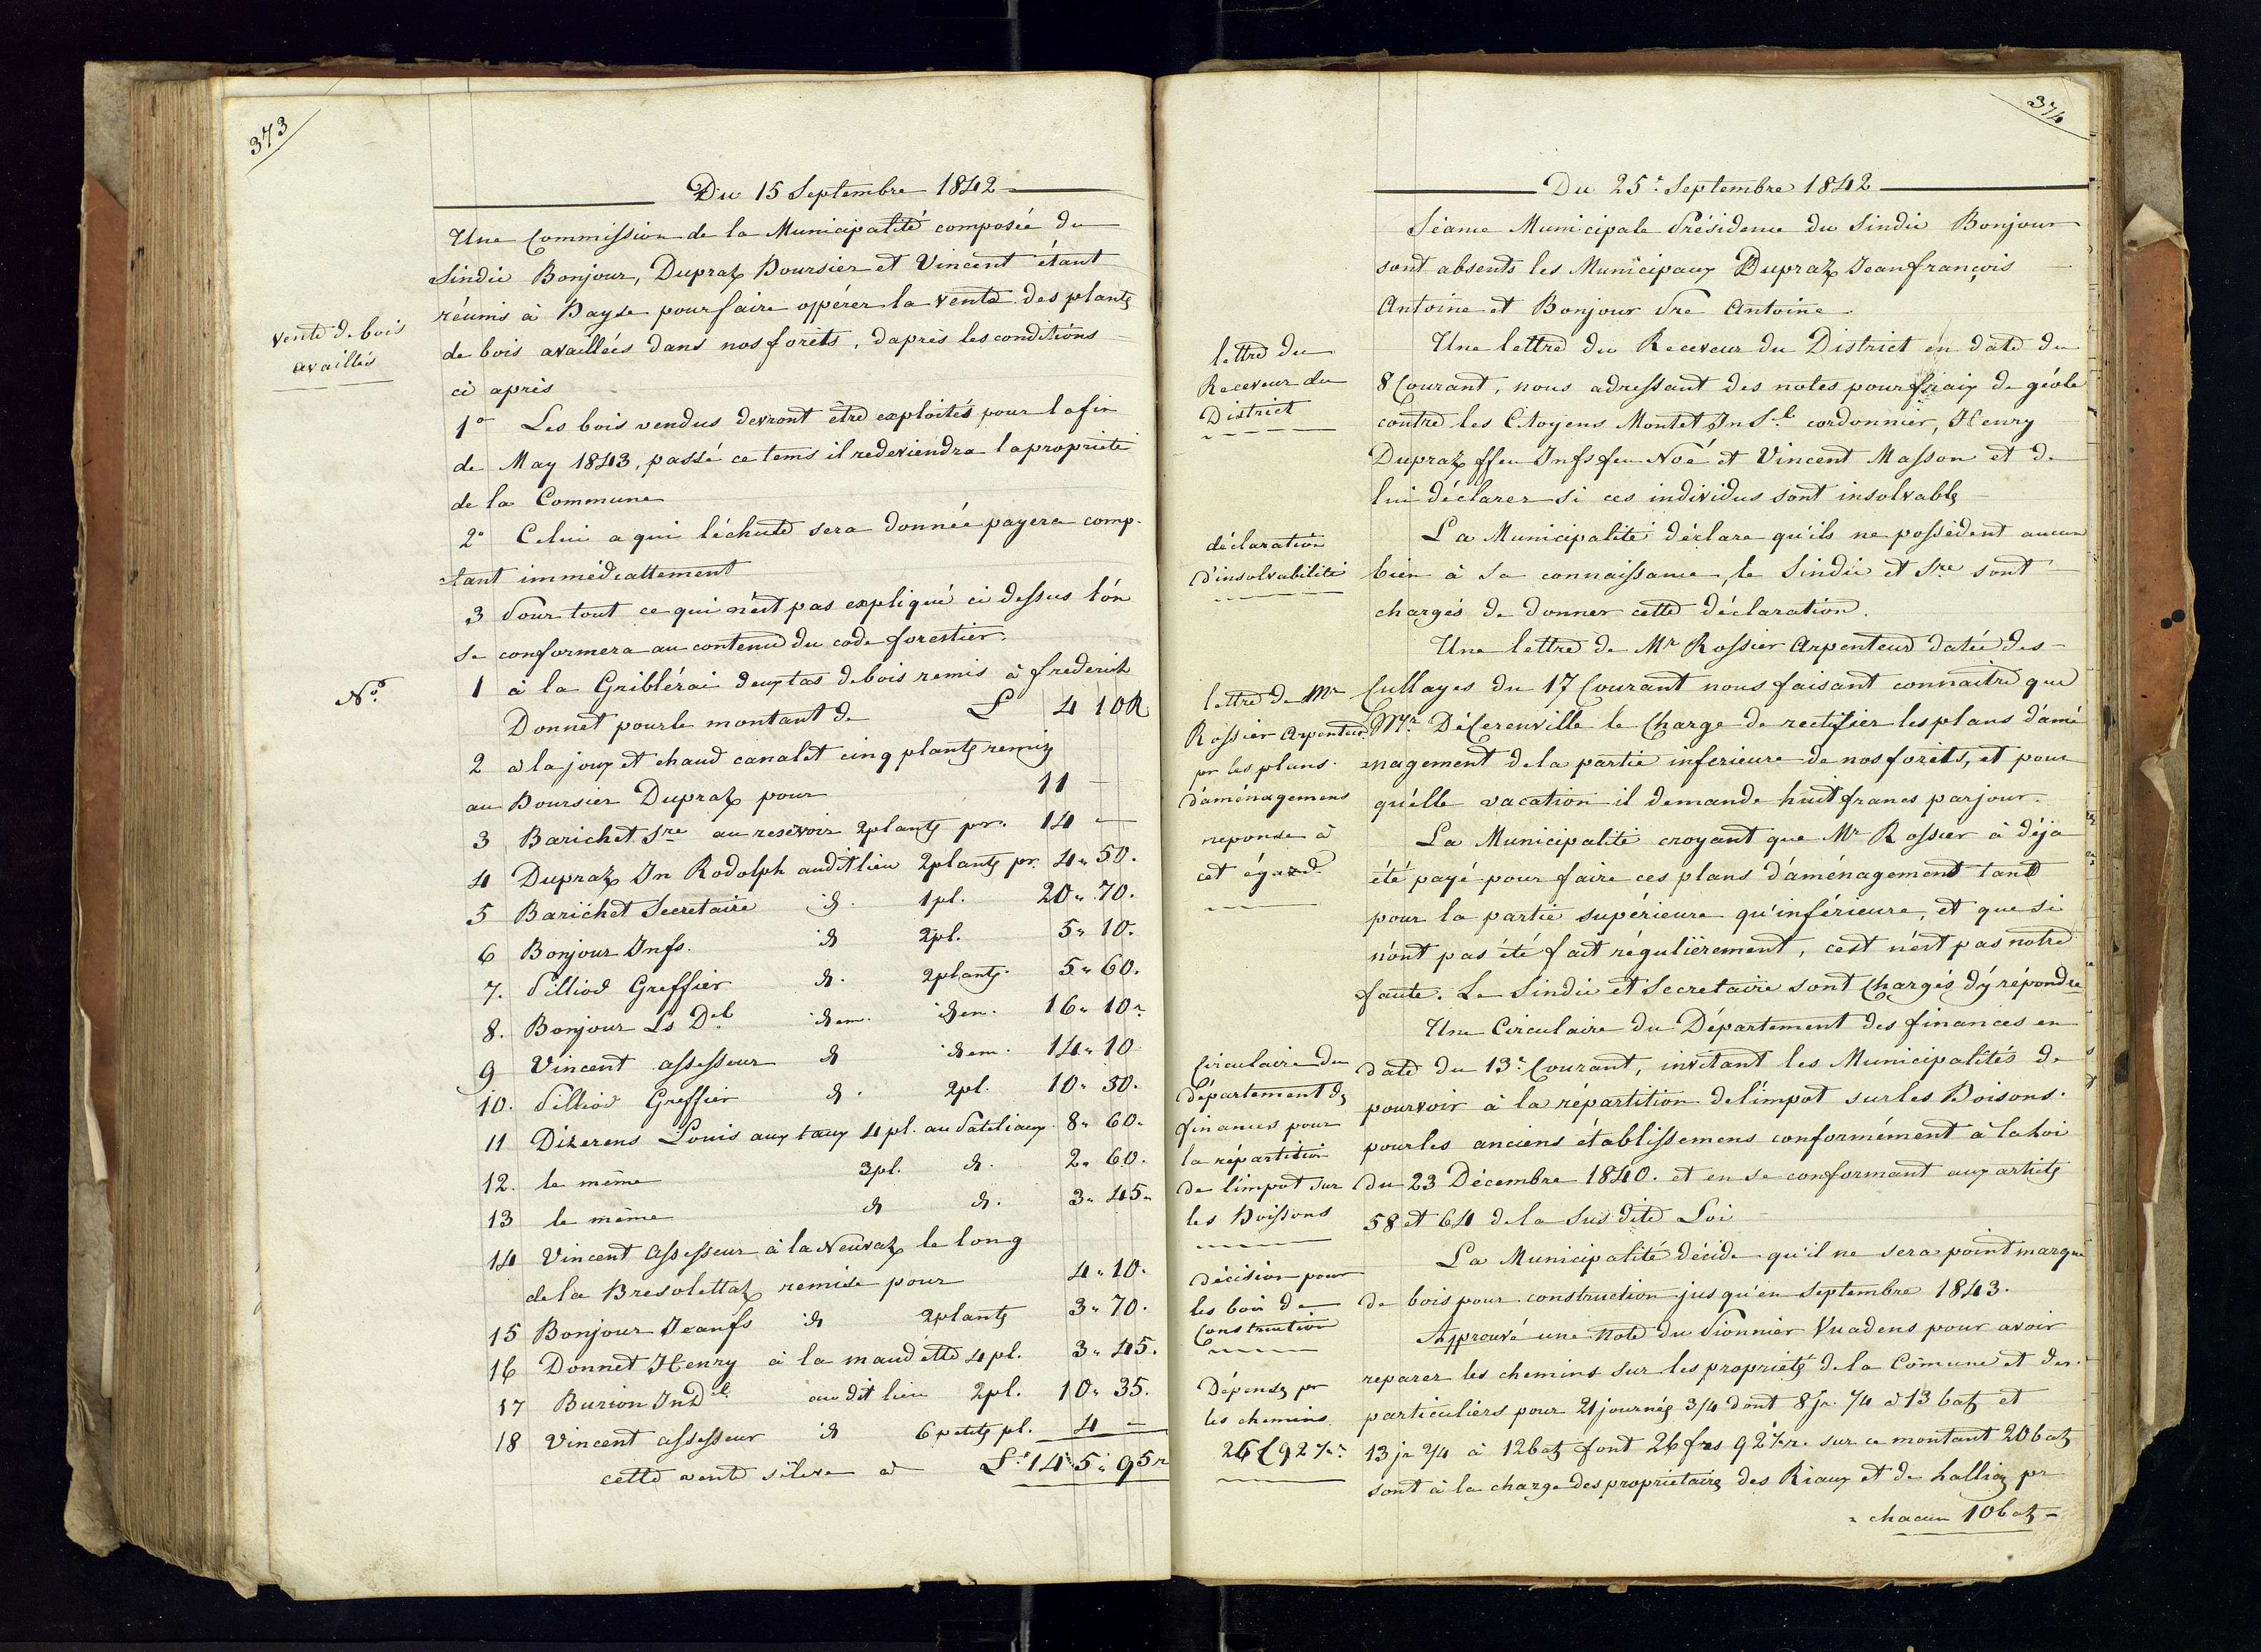 373
Du 15 Septembre 1842
Une Commission de la Municipalité composée du
Sindic Bonjour, Dupraz Boursier et Vincent étant
réunis à Bayse pour faire oppérer la vente des plants
vente de bois
availlés
de bois availlées dans nos forêts, d'aprés les conditions
ci aprés
1° Les bois vendus devront être exploités pour la fin
de May 1843, passé ce tems il redeviendra la propriété
de la Commune
2° Celui a qui l'échute sera donnée payera comp-
tant immédiattement
3 Pour tout ce qui n'est pas expliqué ci dessus l'on
se conformera au contenu du code forestier.
Nos
1 à la Griblérai deux tas de bois remis à frederich
Donnet pour le montant de L 4 10 R
2 à la joux et chaud canalet cinq plants remis
au Boursier Dupraz pour 11 —
3 Barichet Sre au resevoir 2 plants pr. 14 —
4 Dupraz Jn Rodolph audit lieu 2 plants pr. 4 " 50.
5 Barichet Secretaire id. 1 pl. 20 " 70.
6 Bonjour Jnfs. id 2 pl. 5 " 10.
7. Pilliod Greffier id. 2 plants. 5 " 60.
8. Bonjour Ls Del idem. idem. 16 " 10 "
9 Vincent assesseur id idem. 14 " 10
10. Pilliod Greffier id. 2 pl. 10 " 30.
11 Dizerens Louis aux taux 4 pl. au Pateliaux 8 " 60.
12. le même 3 pl. id. 2 " 60.
13 le même id id. 3 " 45 "
14 Vincent Assesseur à la Neuvaz le long
de la Bresolettaz remise pour 4 " 10.
15 Bonjour Jeanfs id 2 plants 3 " 70.
16 Donnet Henry à la maudette 4 pl. 3 " 45.
17 Burion Jn Del au dit lieu 2 pl. 10 " 35.
18 Vincent assesseur id 6 petits pl. 4 —
cette vente s'éleve à L. 145 " 95 r
374
Du 25e Septembre 1842
Séance Municipale Présidence du Sindic Bonjour
sont absents les Municipaux Dupraz Jeanfrançois
Antoine et Bonjour Pre Antoine
lettre du
Receveur du
District
Une lettre du Receveur du District en date du
8 Courant, nous adressant des notes pour fraix de géole
contre les Citoyens Montet Jn Sl. cordonnier, Henry
Dupraz ffeu Jnfs feu Noé et Vincent Masson et de
lui déclarer si ces individus sont insolvables
déclaration
d'insolvabilité
La Municipalité déclare qu'ils ne possèdent aucun
bien à sa connaissance, le Sindic et Sre sont
chargés de donner cette déclaration.
lettre de Mr
Rossier Arpenteur
pr les plans
d'aménagemens
reponse à
cet égard
Une lettre de Mr Rossier Arpenteur datée des
Cullayes du 17 Courant nous faisant connaitre que
Mr. DéCerenville le Charge de rectifier les plans d'amé
nagement de la partie inferieure de nos forêts, et pour
qu'elle vacation il demande huit francs par jour.
La Municipalité croyant que Mr Rossier à déja
été payé pour faire ces plans d'aménagement tant
pour la partie supérieure qu'inférieure, et que si
n'ont pas été fait régulièrement, cest n'est pas notre
faute. Le Sindic et Secretaire sont Chargés d'y répondre
Circulaire du
département des
finances pour
la répartition
de l'impot sur
les Boissons
Une Circulaire du Département des finances en
date du 13e Courant, invitant les Municipalités de
pourvoir à la répartition de l'impot sur les Boisons.
pour les anciens établissemens conformément à la Loi
du 23 Décembre 1840. et en se conformant aux articles
58 et 64 de la Sus dite Loi
décision pour
les bois de
Construction
La Municipalité décide qu'il ne sera point marqué
de bois pour construction jusqu'en Septembre 1843.
Dépenses pr
les chemins.
Approuvé une Note du Pionnier Vuadens pour avoir
reparer les chemins sur les propriétés de la Comune et des
particuliers pour 21 journés 3/4 dont 8 jr. 1/4 à 13 batz et
13 jr 2/4 à 12 batz font 26 frs 9 2 1/2 r. sur ce montant 20 batz
sont à la charge des proprietaires des Riaux et de Lalliaz pr
chacun 10 batz